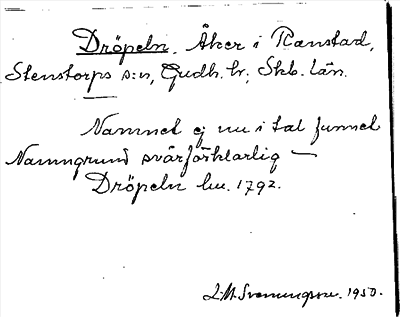 Dröpeln. Åker i Ranstad,
Stenstorps s:n, Gudh. hr; Skb. län.
Namnet ej nu i tal funnet
Namngrund svårförklarlig —
Dröpeln lm. 1792.
L. M. Svenungsson. 1950.